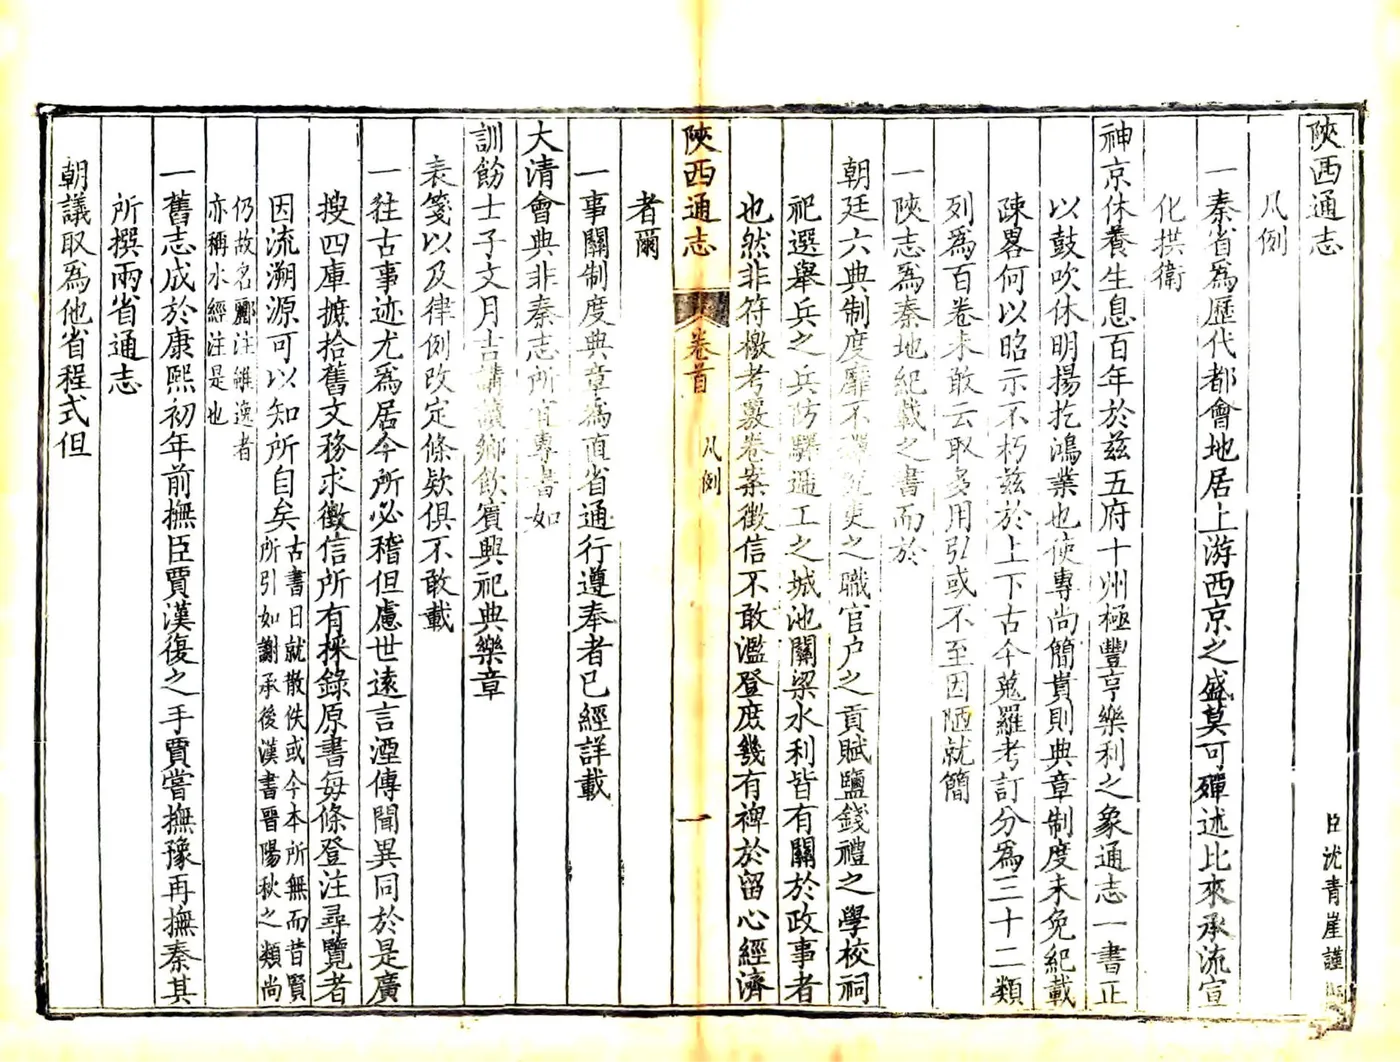 陝西通志
臣沈青崖謹
凡例
一秦省爲歷代都會地居上游西京之盛莫可殫述比來承流宣
化拱衛
神京休養生息百年於茲五府十州極豐亨樂利之象通志一書正
以鼓吹休明揚扢鴻業也使專尚簡貴則典章制度未免紀載
疎畧何以昭示不朽茲於上下古今蒐羅考訂分爲三十二類
列爲百卷未敢云取多用引或不至因陋就簡
一陝志爲秦地紀載之書而於
朝廷六典制度靡不 吏之職官户之貢賦鹽錢禮之學校祠
祀選舉兵之兵防驛逓工之城池關梁水利皆有關於政事者
也然非符檄考覈卷案徵信不敢濫登庶幾有裨於留心經濟
陝西通志
卷首
凡例
一
者爾
一事關制度典章爲直省通行遵奉者已經詳載
大清會典非秦志所宜專書如
訓飭士子文月吉講讀鄉飲賓興祀典樂章
表箋以及律例改定條欵俱不敢載
一往古事迹尤爲居今所必稽但慮世遠言湮傳聞異同於是廣
搜四庫摭拾舊文務求徵信所有採錄原書每條登注尋覽者
因流溯源可以知所自矣古書日就散佚或今本所無而昔賢
所引如謝承後漢書晋陽秋之類尚
仍故名酈注雖逸者
亦稱水經注是也
一舊志成於康熙初年前撫臣賈漢復之手賈嘗撫豫再撫秦其
所撰兩省通志
朝議取爲他省程式但